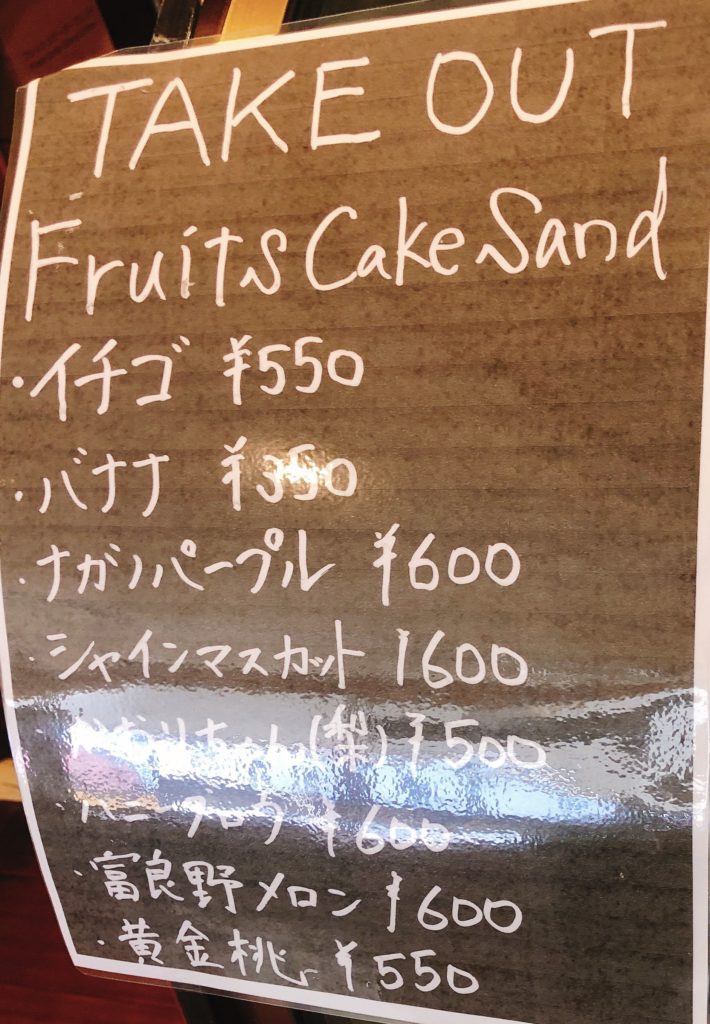 TAKE OUT
Fruits Cake Sand
・イチゴ ¥550
・バナナ ¥350
・ナガノパープル ¥600
・シャインマスカット ¥600
かおりちゃん(梨) ¥500
¥600
・富良野メロン ¥600
・黄金桃 ¥550